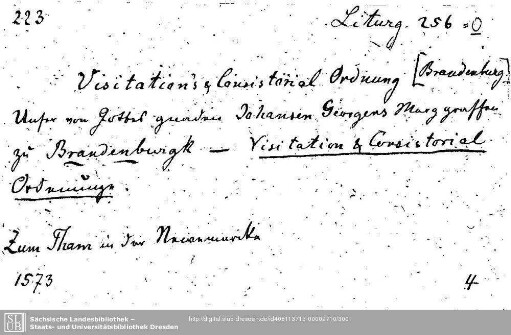 223
Liturg. 256 = 0
Visitation's & Consistorial Ordnung [Brandenburg]
Unser von Gottes gnaden Johansen Georgens Marggraffen
zu Brandenburgk — Visitation & Consistorial
Ordenunge.
Zum Tham in der Newenmarcke
1573 4
Sächsische Landesbibliothek –
Staats- und Universitätsbibliothek Dresden